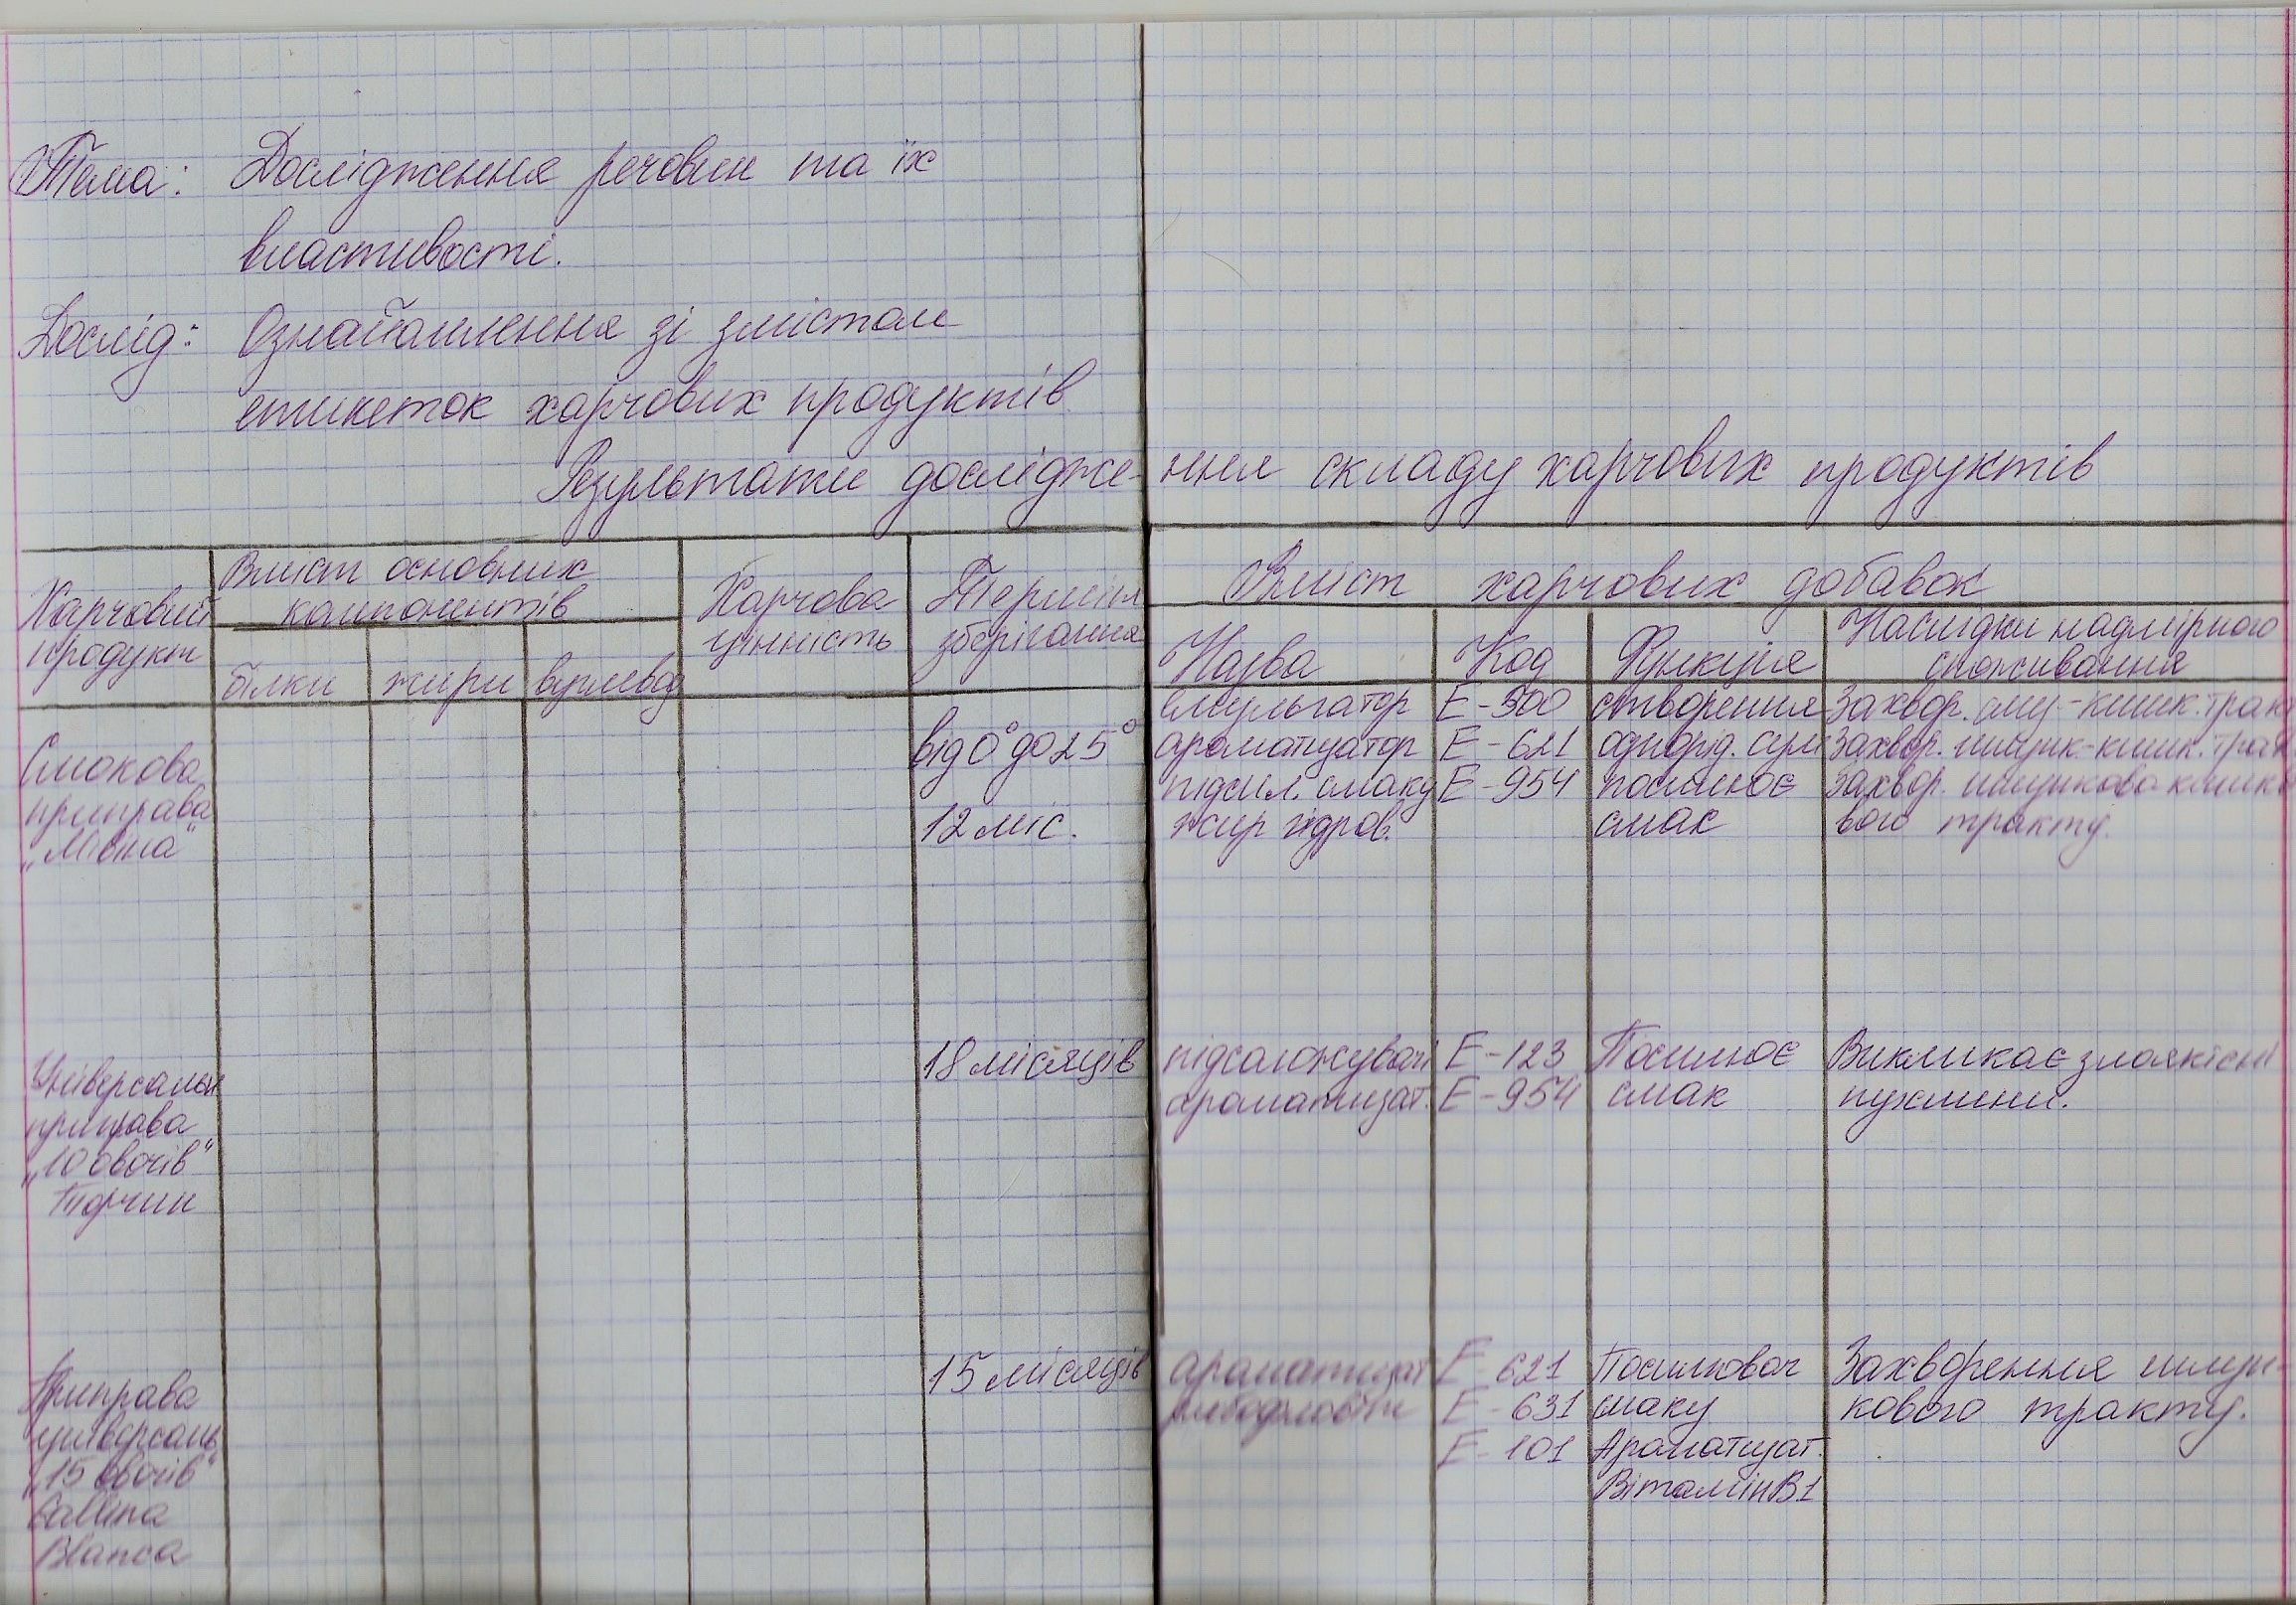 Тема: Дослідження речовин та їх
властивості.
Дослід: Ознайомлення зі змістом
етикеток харчових продуктів
Результати дослідже- ння складу харчових продуктів
Харчовий продукт
Вміст основних
компонентів
білки жири вуглевод
Харчова
цінність
Термін
зберігання
Вміст харчових добавок
Назва Код Функція
Наслідки надмірного
споживання
Смокова
приправа
„Мівіна"
від 0° до 25°
12 міс.
емульгатор Е-500 створення Захвор. шлу-кишк. трак
ароматизатор Е-621 однорід. сум захвор. шлунк.-кишк. трак
підсил. смаку Е-954 посилює захвор. шлунково кишко
жир гідров. смак вого тракту.
Універсальн
приправа
„10 овочів"
Торчин
18 місяців
підсолоджувачі Е-123 Посилює Викликає злоякісні
ароматизат. Е-954 смак пухлини.
Приправа
універсаль
„15 овочів"
Gallina
Blanca
15 місяців
ароматизат Е-621 Посилювач Захворення шлун-
Е-631 смаку кового тракту.
Е-101 Ароматизат.
Вітамін В1